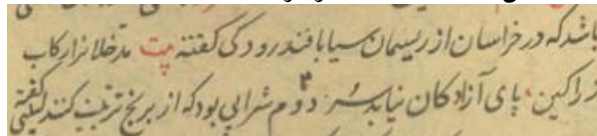 باشد که در خراسان از ریسمان سیابافند رودکی گفته بیت مدخلانرا رکاب
زراکین پای آزادکان نیابد سر دوم شرابی بود که از برنج ترتیب کنند لبیبی گفته